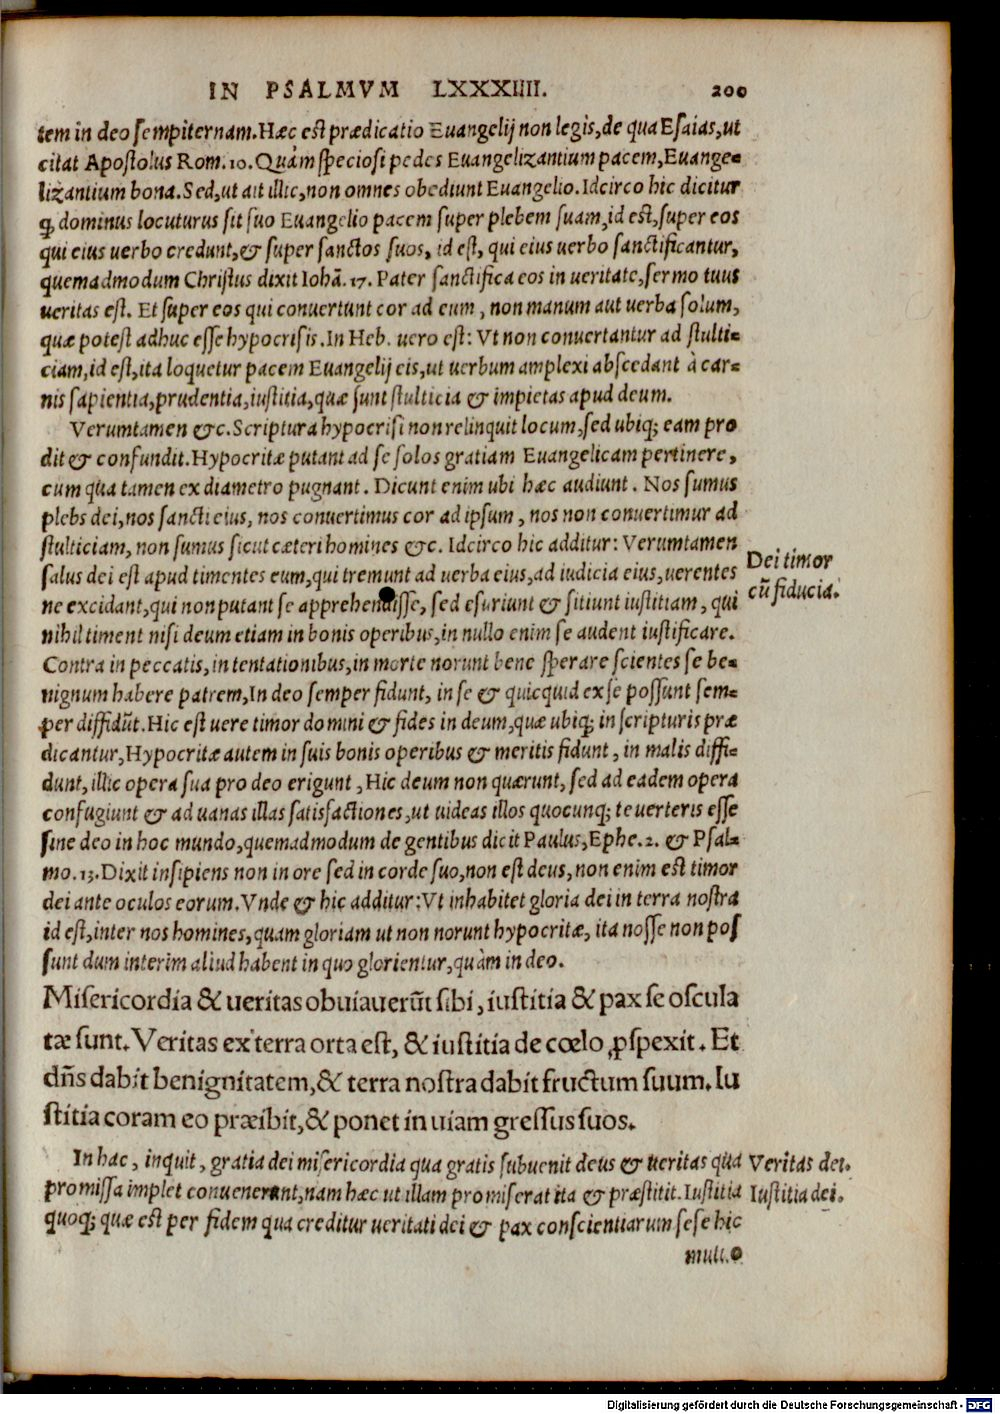 IN PSALMVM LXXXIIII. 200
tem in deo sempiternam. Hæc est prædicatio Euangelij non legis, de qua Esaias, ut
citat Apostolus Rom. 10. Quàm speciosi pedes Euangelizantium pacem, Euange-
lizantium bona. Sed, ut ait illic, non omnes obediunt Euangelio. Idcirco hic dicitur
ꝙ dominus locuturus sit suo Euangelio pacem super plebem suam, id est, super eos
qui eius uerbo credunt, & super sanctos suos, id est, qui eius uerbo sanctificantur,
quemadmodum Christus dixit Iohã. 17. Pater sanctifica eos in ueritate, sermo tuus
ueritas est. Et super eos qui conuertunt cor ad eum, non manum aut uerba solum,
quæ potest adhuc esse hypocrisis. In Heb. uero est: Vt non conuertantur ad stulti-
ciam, id est, ita loquetur pacem Euangelij eis, ut uerbum amplexi abscedant à car-
nis sapientia, prudentia, iustitia, quæ sunt stulticia & impietas apud deum.
Verumtamen &c. Scriptura hypocrisi non relinquit locum, sed ubiq; eam pro
dit & confundit. Hypocritæ putant ad se solos gratiam Euangelicam pertinere,
cum qua tamen ex diametro pugnant. Dicunt enim ubi hæc audiunt. Nos sumus
plebs dei, nos sancti eius, nos conuertimus cor ad ipsum, nos non conuertimur ad
stulticiam, non sumus sicut cæteri homines &c. Idcirco hic additur: Verumtamen
salus dei est apud timentes eum, qui tremunt ad uerba eius, ad iudicia eius, uerentes
ne excidant, qui non putant se apprehendisse, sed esuriunt & sitiunt iustitiam, qui
nihil timent nisi deum etiam in bonis operibus, in nullo enim se audent iustificare.
Contra in peccatis, in tentationibus, in morte norunt bene sperare scientes se be-
nignum habere patrem, In deo semper fidunt, in se & quicquid ex se possunt sem-
per diffidũt. Hic est uere timor domini & fides in deum, quæ ubiq; in scripturis præ
dicantur, Hypocritæ autem in suis bonis operibus & meritis fidunt, in malis diffi-
dunt, illic opera sua pro deo erigunt, Hic deum non quærunt, sed ad eadem opera
confugiunt & ad uanas illas satisfactiones, ut uideas illos quocunq; te uerteris esse
sine deo in hoc mundo, quemadmodum de gentibus dicit Paulus, Ephe. 2. & Psal-
mo. 13. Dixit insipiens non in ore sed in corde suo, non est deus, non enim est timor
dei ante oculos eorum. Vnde & hic additur: Vt inhabitet gloria dei in terra nostra
id est, inter nos homines, quam gloriam ut non norunt hypocritæ, ita nosse non pos
sunt dum interim aliud habent in quo glorientur, quàm in deo.
Dei timor
cũ fiducia.
Misericordia & ueritas obuiauerũt sibi, iustitia & pax se oscula
tæ sunt. Veritas ex terra orta est, & iustitia de cœlo ꝓspexit. Et
dñs dabit benignitatem, & terra nostra dabit fructum suum. Iu
stitia coram eo præibit, & ponet in uiam gressus suos.
In hac, inquit, gratia dei misericordia qua gratis subuenit deus & ueritas qua
promissa implet conuenerunt, nam hæc ut illam promiserat ita & præstitit. Iustitia
quoq; quæ est per fidem qua creditur ueritati dei & pax conscientiarum sese hic
Veritas dei.
Iustitia dei.
Digitalisierung gefördert durch die Deutsche Forschungsgemeinschaft - DFG